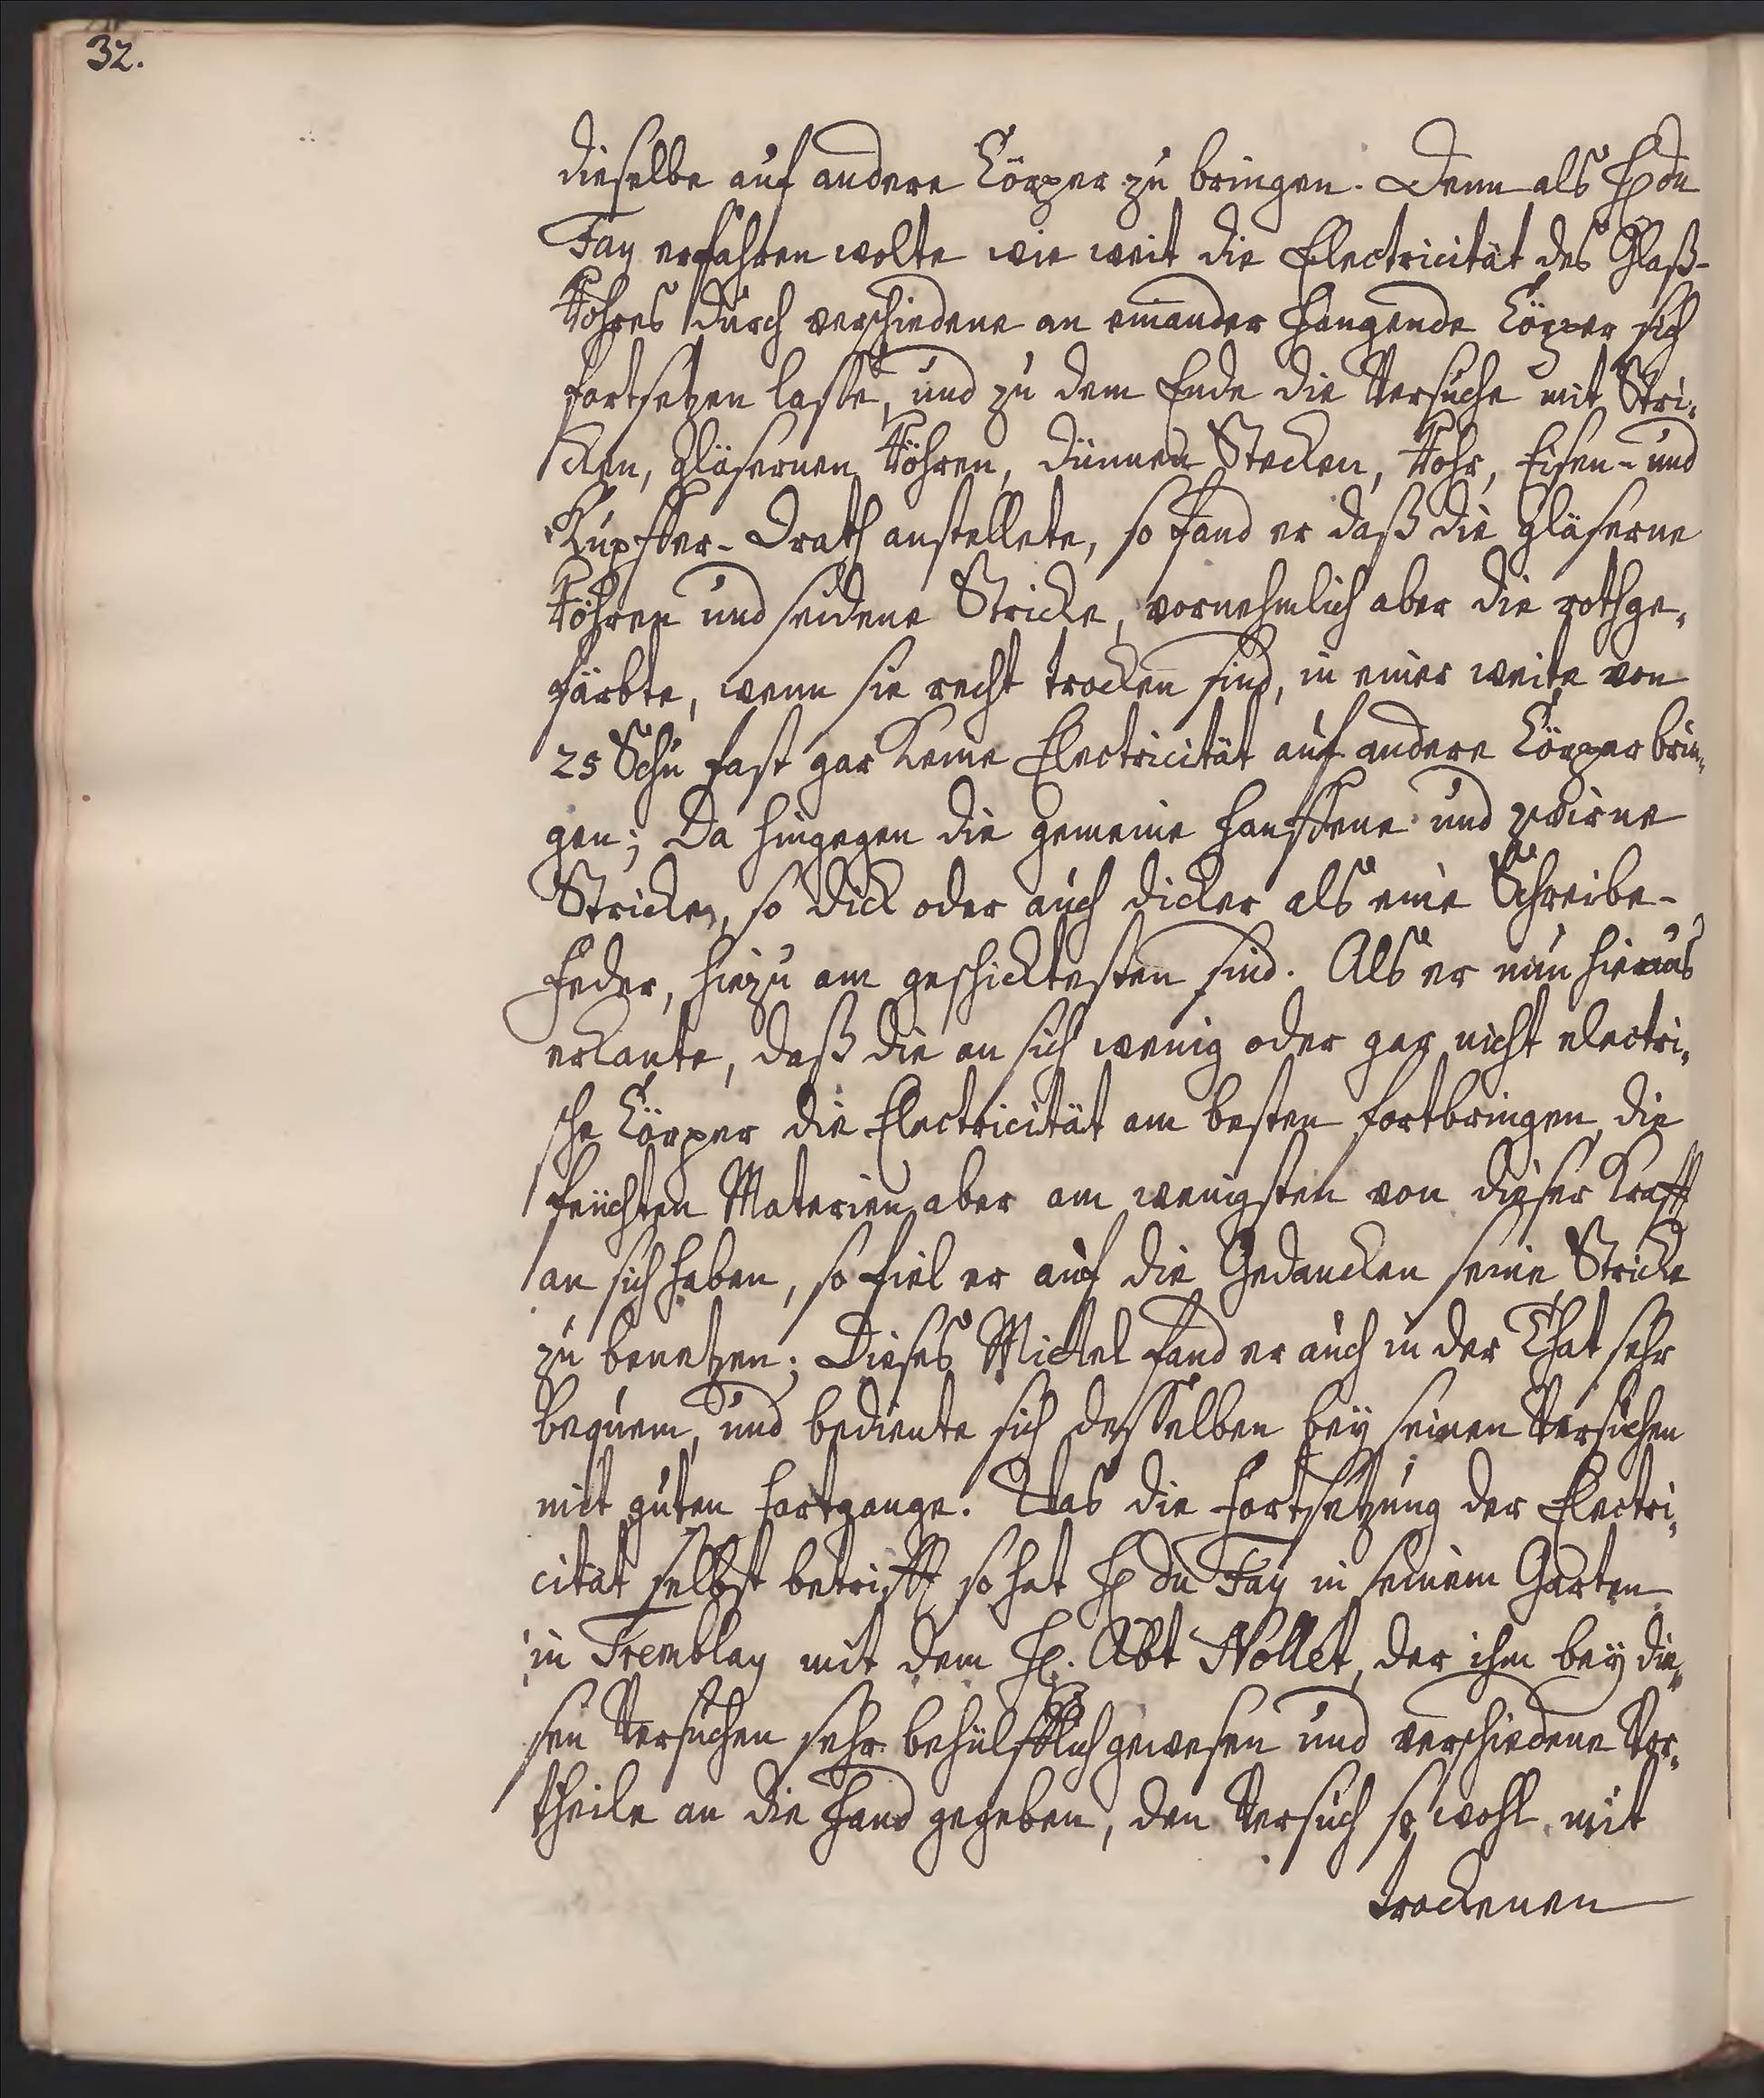 32.
dieselbe auf andere Cörper zu bringen. Denn als H du
Fay erfahren wolte wie weit die Electricität des Glaß-
Rohres durch verschiedene an einander hangende Cörper sich
fortsetzen lasse, und zu dem Ende die Versuche mit Stri-
cken, gläsernen Röhren, dünnen Stecken, Rohr, Eisen- und
Kupffer-Drath anstellete, so fand er daß die gläserne
Röhren und seidene Stricke, vornehmlich aber die rothge-
färbte, wenn sie recht trocken sind, in einer weite von
25 Schu fast gar keine Electricität auf andere Cörper brin-
gen; Da hingegen die gemeine hanffene und zwirne
Stricke, so dick oder auch dicker als eine Schreibe-
feder, hiezu am geschicktesten sind. Als er nun hieraus
erkante, daß die an sich wenig oder gar nicht electri-
sche Cörper die Electricität am besten fortbringen, die
feuchten Materien aber am wenigsten von dieser Krafft
an sich haben, so fiel er auf die Gedancken seine Stricke
zu benetzen; Dieses Mittel fand er auch in der That sehr
bequem, und bediente sich desselben bey seinen Versuchen
mit guten Fortgange. Was die Fortsetzung der Electri-
cität selbst betrifft, so hat H du Fay in seinem Garten
in Tremblay mit dem H. Abt Nollet, der ihm bey die-
sen Versuchen sehr behülfflich gewesen und verschiedene Vor-
theile an die Hand gegeben, den Versuch so wohl mit
trockenen